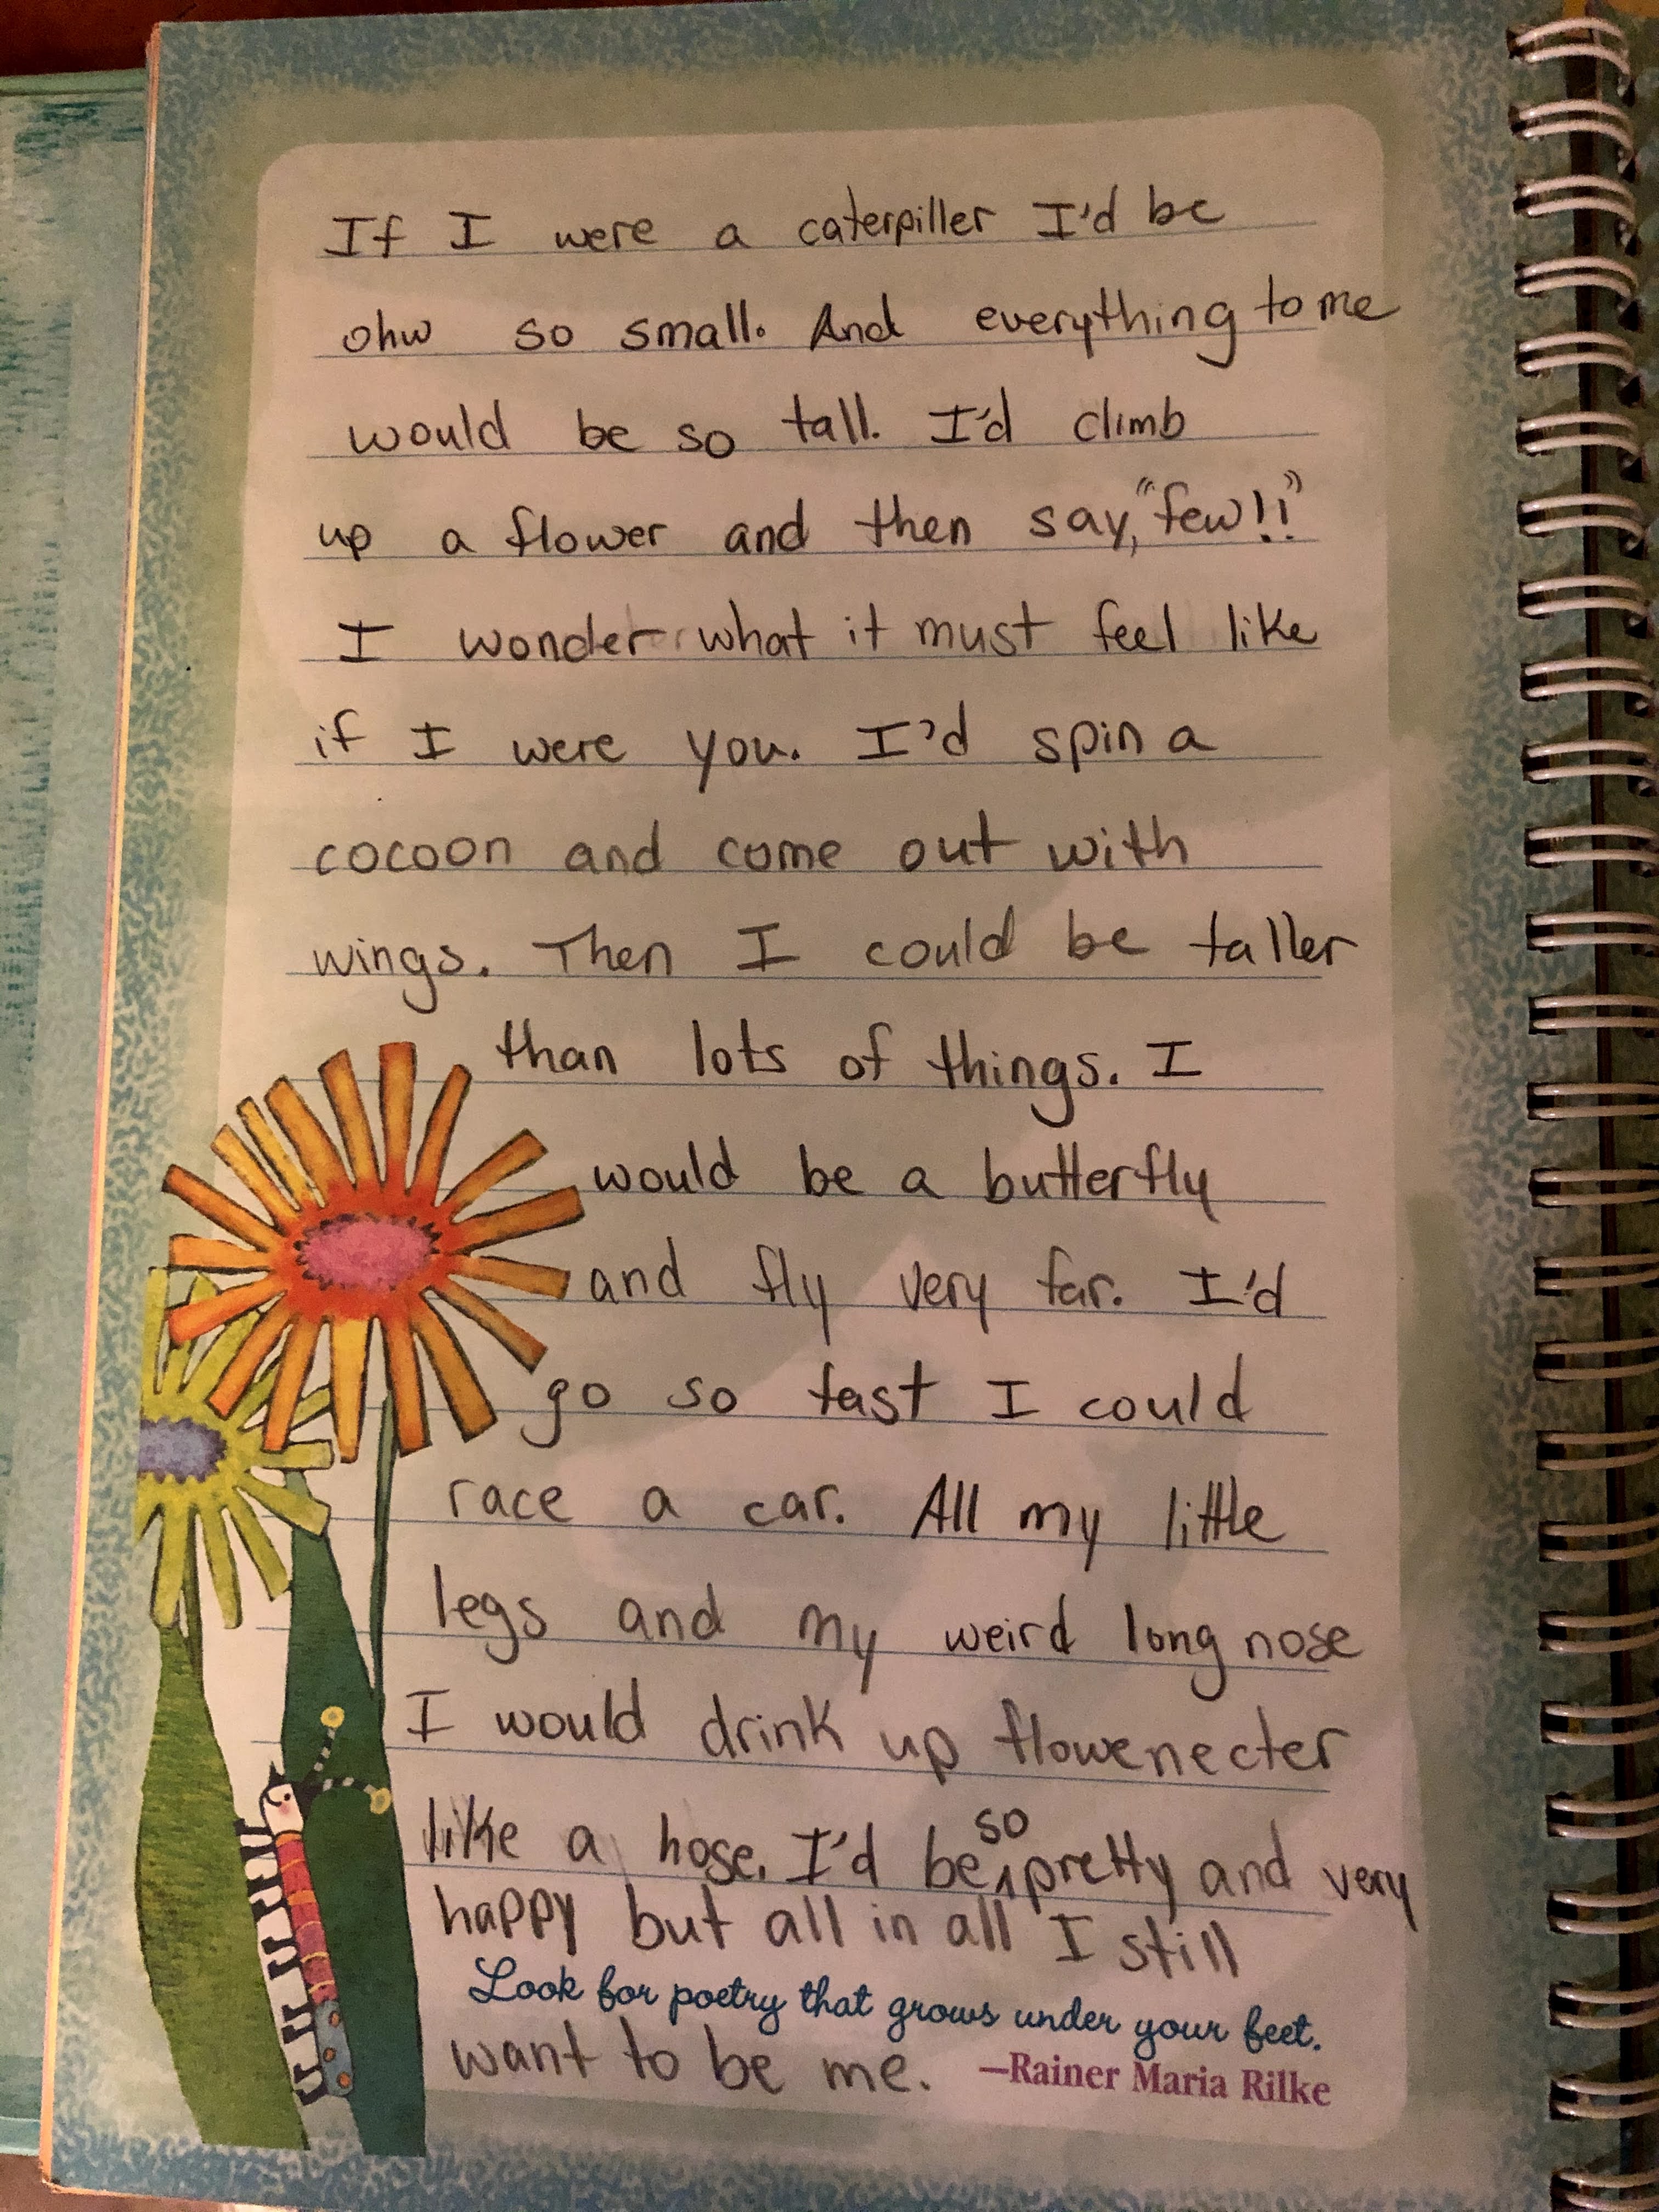 If I were a caterpiller I'd be
ohw so small. And everything to me
would be so tall. I'd climb
up a flower and then say, "few!!"
I wonder what it must feel like
if I were you. I'd spin a
cocoon and come out with
wings. Then I could be taller
than lots of things. I
would be a butterfly
and fly very far. I'd
go so fast I could
race a car. All my little
legs and my weird long nose
I would drink up flowenecter
like a hose. I'd be so pretty and very
happy but all in all I still
Look for poetry that grows under your feet.
want to be me. —Rainer Maria Rilke